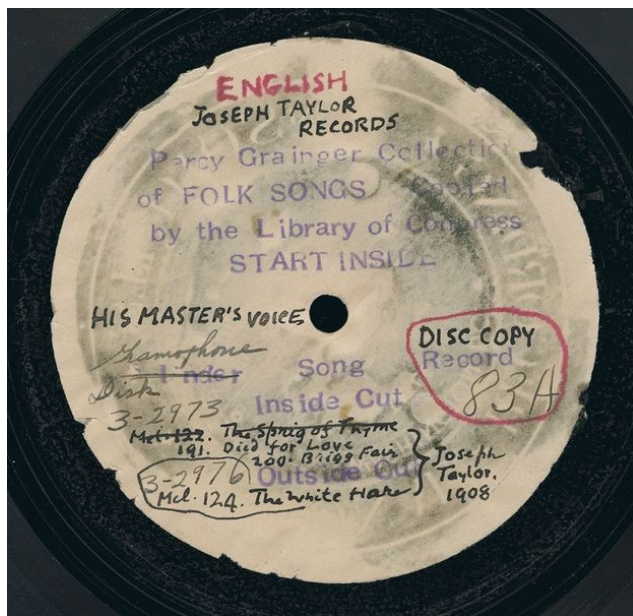 ENGLISH
JOSEPH TAYLOR
RECORDS
Percy Grainger Collection
of FOLK SONGS Copied
by the Library of Congress
START INSIDE
HIS MASTER'S VOICE
Gramophone
Disk
DISC COPY
Record
83A
Song
Inside Cut
3-2973
Mel. 122. The Sprig of Thyme
191. Died for Love
200. Brigg Fair
Outside Cut
3-2976
Mel. 124. The White Hare
Joseph
Taylor.
1908